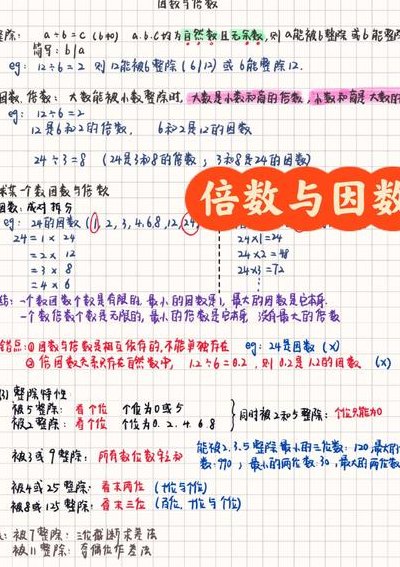 因数与倍数
整除: a÷b=c (b≠0) a.b.c均为自然数且无余数,则a能被b整除或b能整除
简写: b|a
eg: 12÷6=2 则12能被6整除 (6|12) 或 6能整除12.
因数.倍数: 大数能被小数整除时,大数是小数和商的倍数,小数和商是大数的
eg: 12÷6=2
12是6和2的倍数. 6和2是12的因数
24÷3=8 (24是3和8的倍数; 3和8是24的因数)
求某一个数因数与倍数
倍数与因数
因数: 成对拆分
eg: 24的因数 (1,2,3,4.6.8,12,24
24=1×24
=2×12
=3×8
=4×6
24×1=24
24×2=48
24×3=72
结: 一个数因数个数是有限的,最小的因数是1,最大的因数是它本身.
一个数倍数个数是无限的,最小的倍数是它本身,没有最大的倍数
错点: ①因数与倍数是相互依存的,不能单独存在 eg: 24是因数 (×)
②倍因数关系只存在自然数中, 1.2÷6=0.2,则0.2是1.2的因数 (×)
(3) 整除特性
被5整除: 看个位 个位为0或5
被2整除: 看个位 个位为0.2.4.6.8
同时被2和5整除: 个位只能为0
被3或9整除: 所有数位数字之和
能被2.3.5整除最小的三位数: 120,最大的
数: 990; 最小的两位数: 30,最大的两位数
被4或25整除: 看末两位 (十位与个位)
被8或125整除: 看末三位 (百位、十位与个位)
被7整除: 三位截断求差法
被11整除: 奇偶位作差法